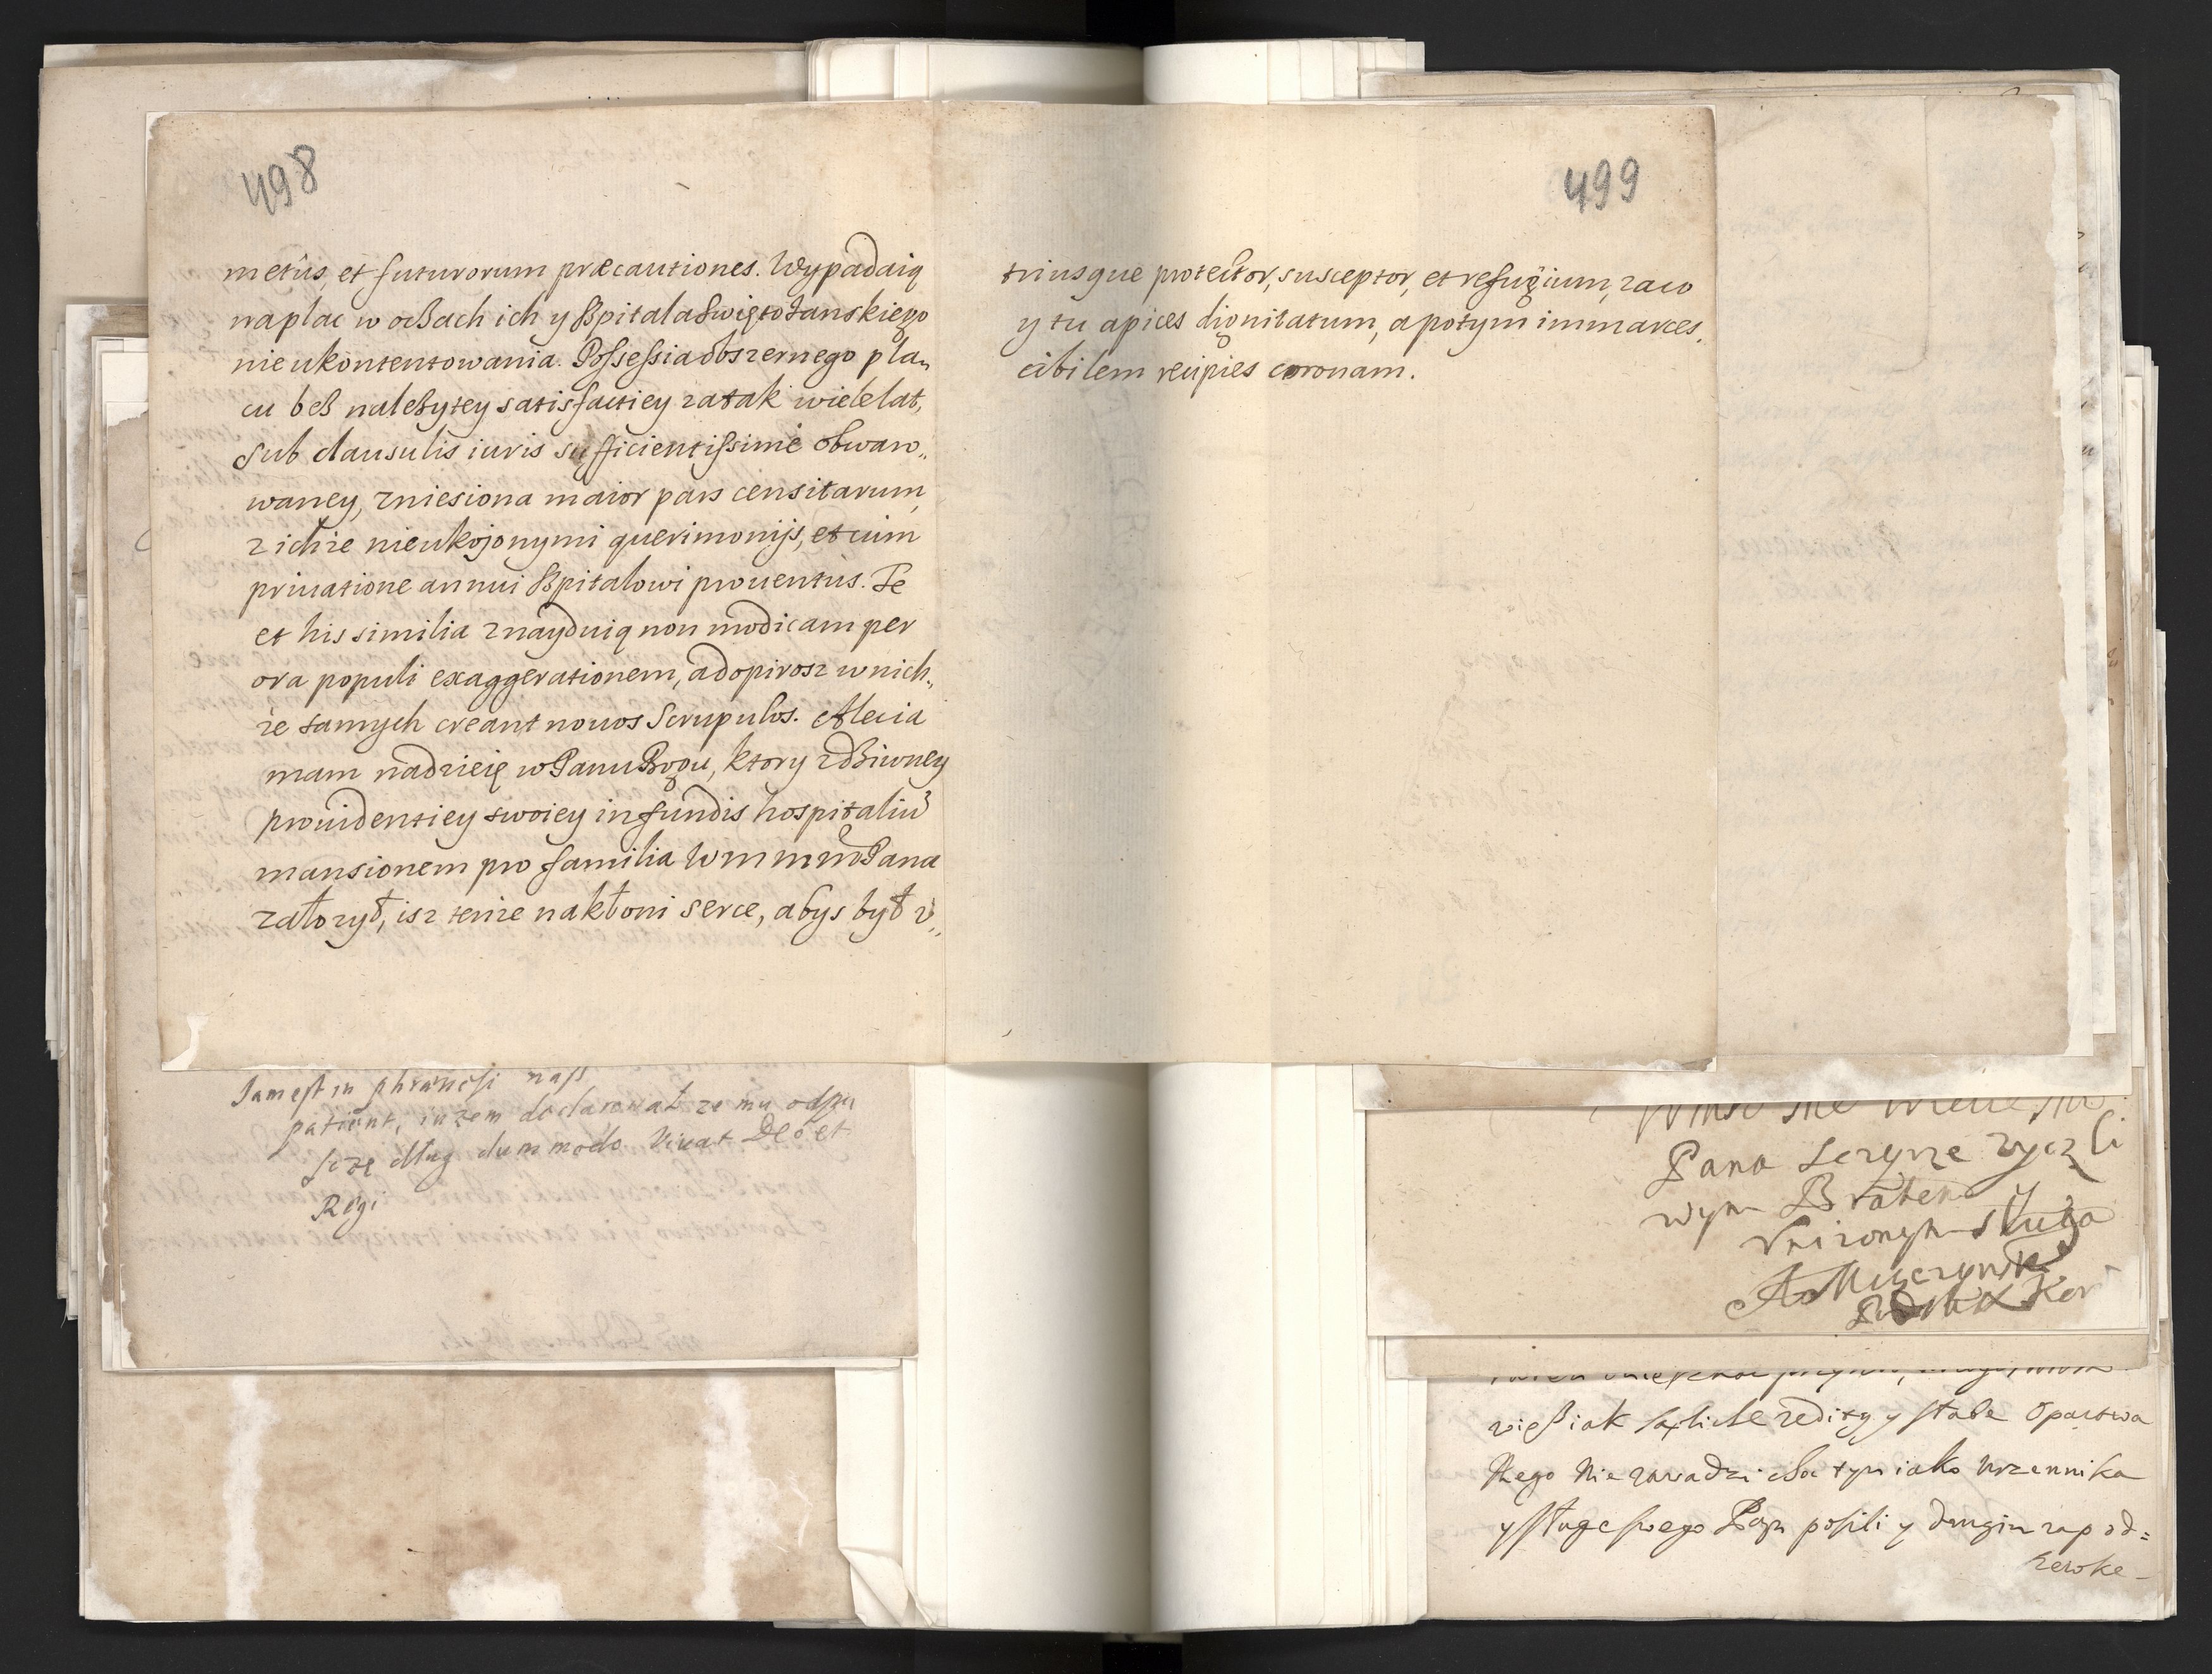 498
metûs, et futurorum præcautiones. Wypadaią
na plac w oczach ich y szpitala Swiętożanskiego
nieukontentowania. Possessia obszernego pla„
cu beß należytey satisfactiey za tak wiele lat,
sub clausulis iuris sufficientissimè obwaro„
waney, zniesiona maior pars censitarum,
z ichże nieukojonymi querimonijs, et cum
priuatione annui ßpitalowi prouentûs. Te
et his similia znayduią non modicam per
ora populi exaggerationem, a dopirosz w nich„
że samych creant nouos scrupulos. Ale ia
mam nadzieię w Panu Bogu, ktory z dziwney
prouidentiey swoiey in fundis hospitaliũ
mansionem pro familia W m m m Pana
założył, isz tenże nakłoni serce, abys był v„
499
triusque protector, susceptor, et refugium, za co
y tu apices dignitatum, a potym immarces„
cibilem recipies coronam.
Iam est in phrænesi nasz
patient, iużem declarował że mu odpu
szczę dług dummodo viuat Deo et
Regi
Pana szczyrze życzli
wym Bratem y
Vniżonym Sługą
Kor
y sługę swego posili y
zewke